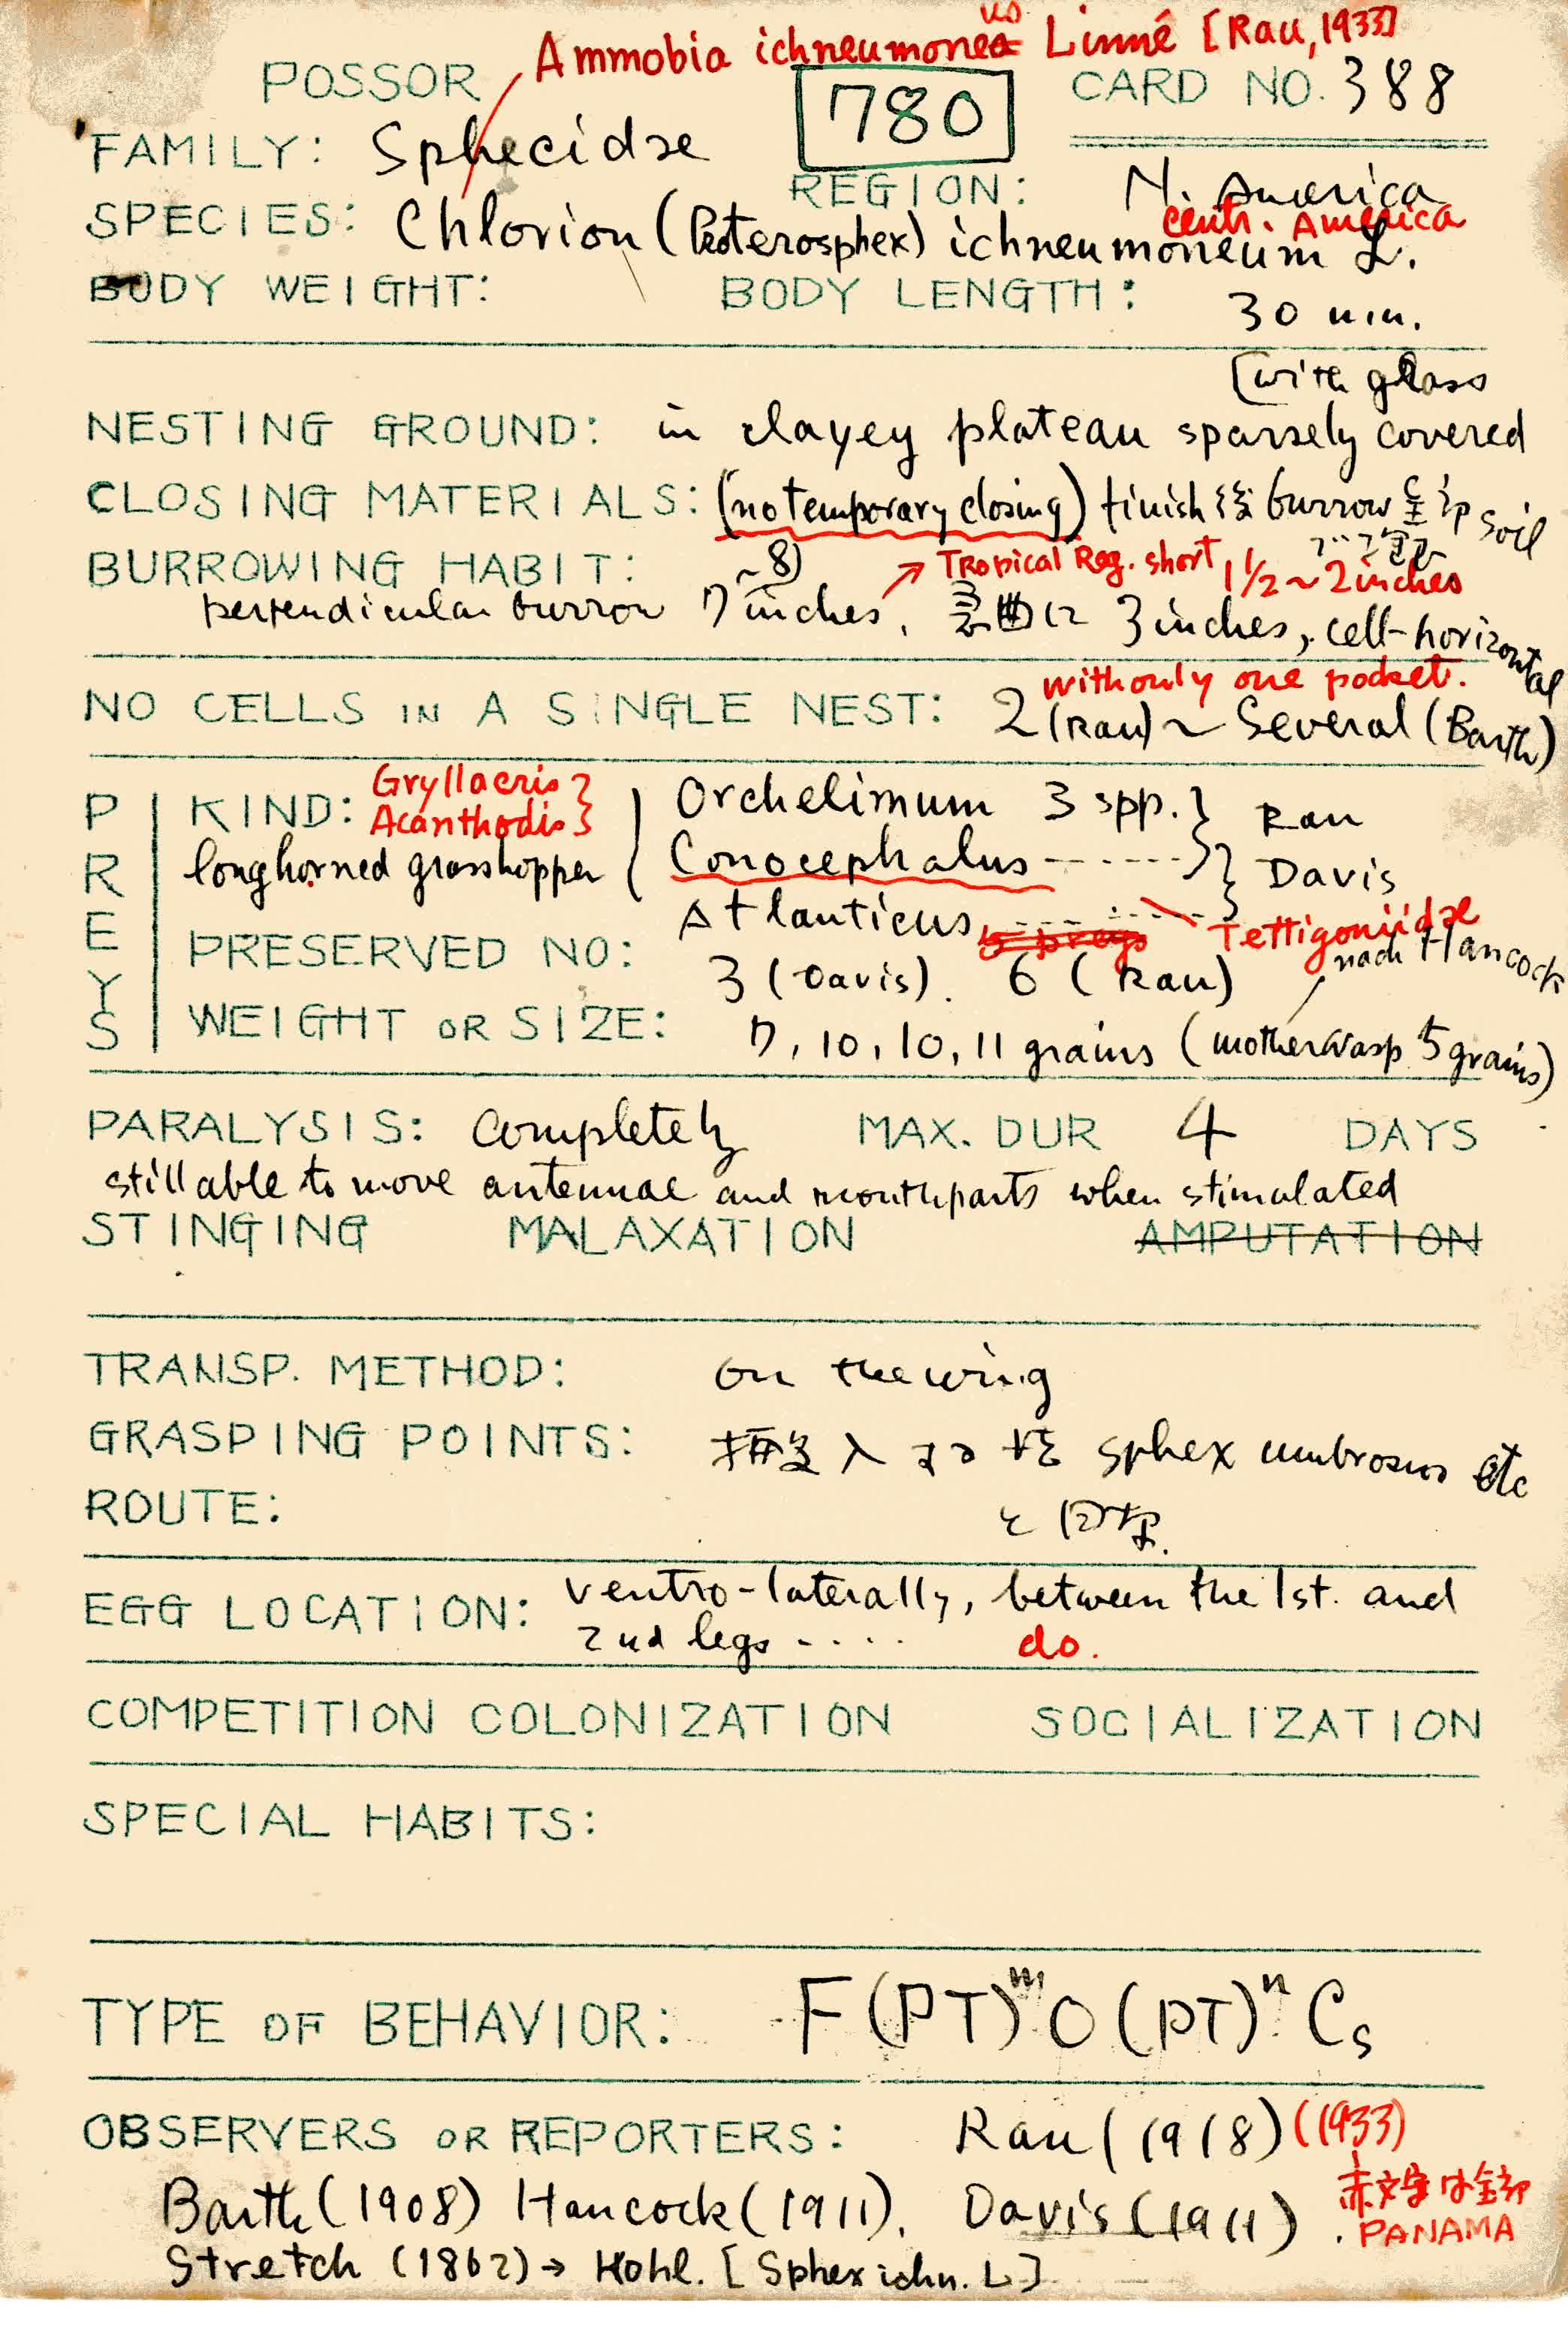 Ammobia ichneumonea us Linné [Rau, 1933]
POSSOR 780 CARD NO. 388
FAMILY: Sphecidae
REGION: N. America
centr. America
SPECIES: Chlorion (Proterosphex) ichneumoneum L.
BODY WEIGHT: BODY LENGTH: 30 mm.
[with grass
NESTING GROUND: in clayey plateau sparsely covered
CLOSING MATERIALS: (no temporary closing) finish 後 burrow 全部 soil
BURROWING HABIT: ~8) Tropical Reg. short, 1 1/2 ~ 2 inches
perpendicular burrow 7 inches, 弯曲に 3 inches, cell-horizontal
with only one pocket.
NO CELLS IN A SINGLE NEST: 2 (Rau) ~ Several (Barth)
PREYS
KIND: Gryllacris Acanthodis
longhorned grasshopper
Orchelimum 3 spp. Rau
Conocephalus Davis
Atlanticus Tettigoniidae
PRESERVED NO: 3 (Davis). 6 (Rau) nach Hancock
WEIGHT OR SIZE: 7, 10, 10, 11 grains (mother wasp 5 grains)
PARALYSIS: completely MAX. DUR 4 DAYS
still able to move antennae and mouthparts when stimulated
STINGING MALAXATION AMPUTATION
TRANSP. METHOD: on the wing
GRASPING POINTS: 搬入 Sphex umbrosus etc
ROUTE: と同様.
EGG LOCATION: ventro-laterally, between the 1st. and
2nd legs ---- do.
COMPETITION COLONIZATION SOCIALIZATION
SPECIAL HABITS:
TYPE OF BEHAVIOR: F(PT)ᵐO(PT)ⁿCs
OBSERVERS OR REPORTERS: Rau (1918) (1933)
赤文字は全部
PANAMA
Barth (1908) Hancock (1911), Davis (1911).
Stretch (1862) → Kohl. [Sphex ichn. L]